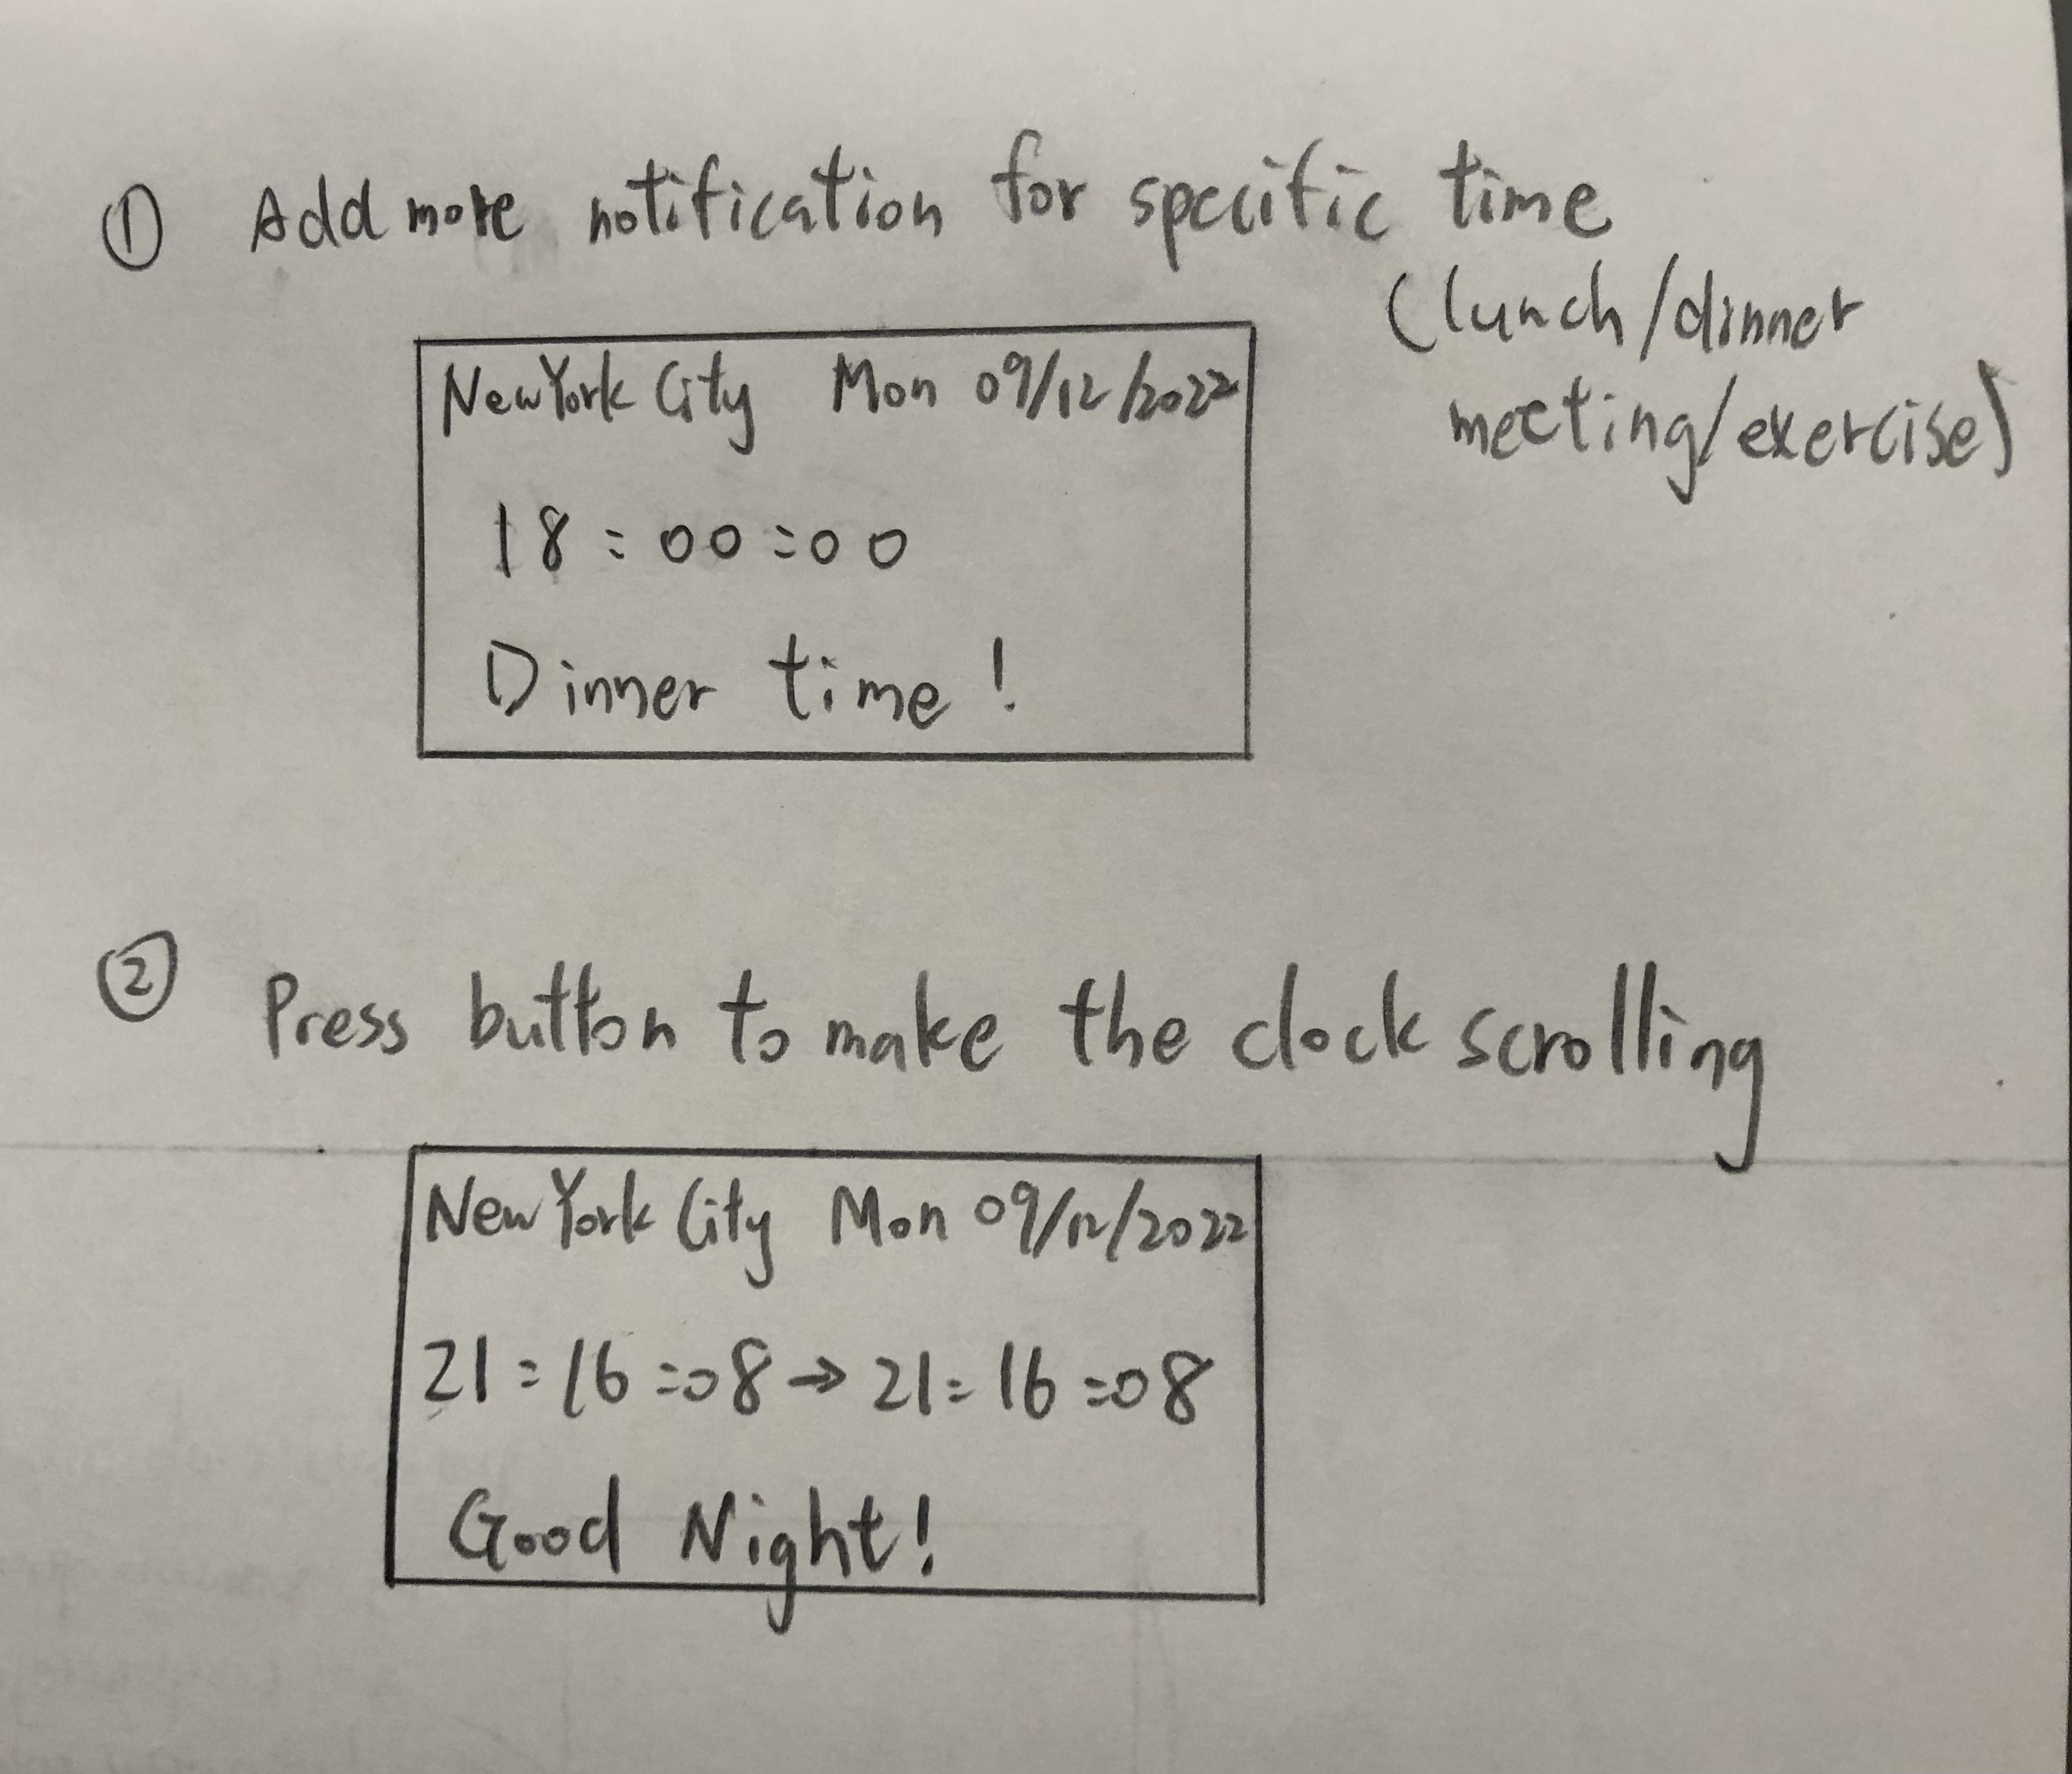 ① Add more notification for specific time
(lunch/dinner
meeting/exercise)
New York City Mon 09/12/2022
18:00:00
Dinner time!
② Press button to make the clock scrolling
New York City Mon 09/12/2022
21:16:08→21:16:08
Good Night!